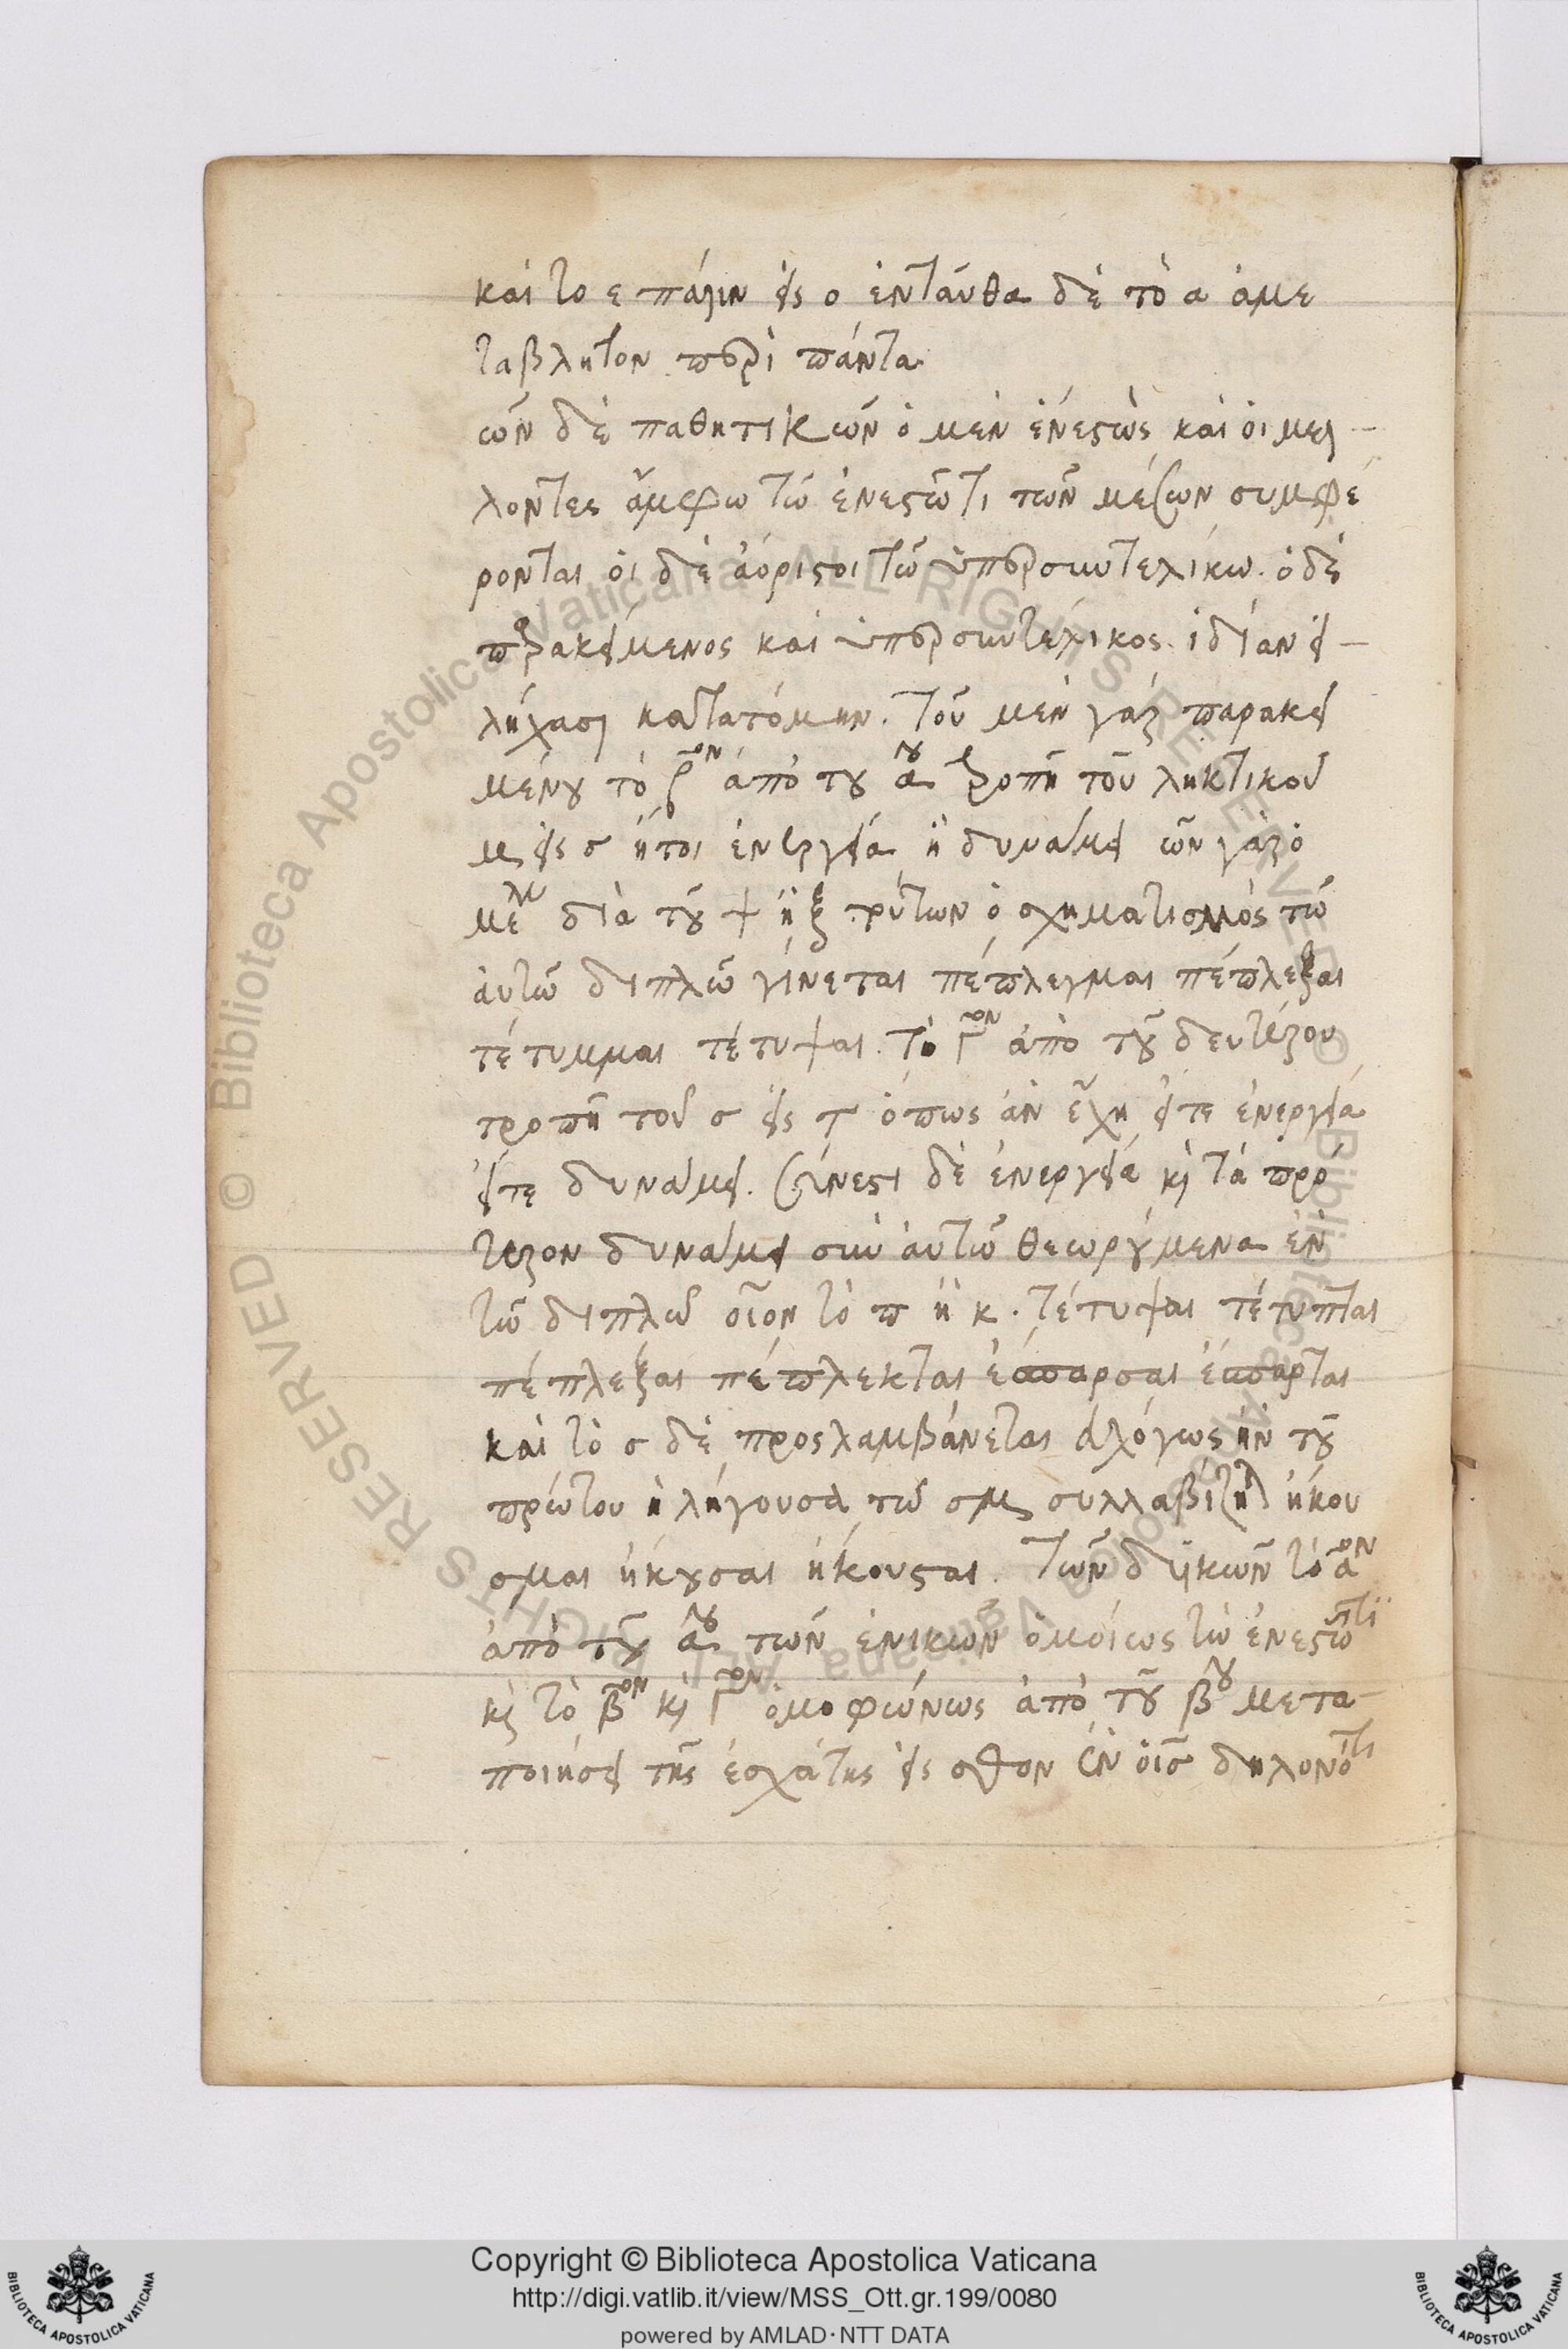 καὶ το ε πάλιν εἰς ο ἐνταῦθα δὲ τὸ α ἀμε
τάβλητον περὶ πάντα
ῶν δὲ παθητικῶν ὁ μὲν ἐνεστὼς καὶ οἱ μελ-
λοντες ἄμφω τῶ ἐνεστῶτι τῶν μέσων συμφέ
ρονται οἱ δὲ ἀόριστοι τῶ ὑπερσυντελίκω. ὁ δὲ
παρακείμενος καὶ ὑπερσυντέλικος ἰδίαν εἰ-
λήχασι κατατόμην. τοῦ μὲν γὰρ παρακει
μένου τὸ βον ἀπὸ του αου τροπῆ τοῦ ληκτικοῦ
μ εἰς σ ἤτοι ἐνεργεία ἢ δυνάμει ὧν γὰρ ὁ
μελ διὰ τοῦ ψ ἢ ξ τούτων ὁ σχηματισμὸς τῶ
αὐτῶ διπλῶ γίνεται πέπλεγμαι πέπλεξαι
τέτυμμαι τέτυψαι. τὸ γον ἀπὸ τοῦ δευτέρου
τροπῆ τοῦ σ εἰς τ ὅπως ἂν ἔχη εἴτε ἐνεργεία
εἴτε δυνάμει. γίνεται δὲ ἐνεργεία καὶ τὰ πρό
τερον δυνάμει σὺν αὐτῶ θεωρούμενα ἐν
τῶ διπλῶ οἷον τὸ π ἢ κ. τέτυψαι τέτυπται
πέπλεξαι πέπλεκται ἔσπαρσαι ἔσπαρται
καὶ τὸ σ δὲ προσλαμβάνεται ἀλόγως ἢν τοῦ
πρώτου ἡ λήγουσα τῶ σμ συλλαβίζηται ἤκου
σμαι ἤκουσαι ἤκουσται. τῶν δυϊκῶν τὸ αον
ἀπὸ τοῦ αου τῶν ἑνικῶν ὁμοίως τῶ ἐνεστῶτι
καὶ τὸ βον καὶ γον ὁμοφώνως ἀπὸ τοῦ βου μετα-
ποιήσει τῆς ἐσχάτης εἰς σθον ἐν οἷς δηλονότι
Copyright © Biblioteca Apostolica Vaticana
http://digi.vatlib.it/view/MSS_Ott.gr.199/0080
powered by AMLAD·NTT DATA